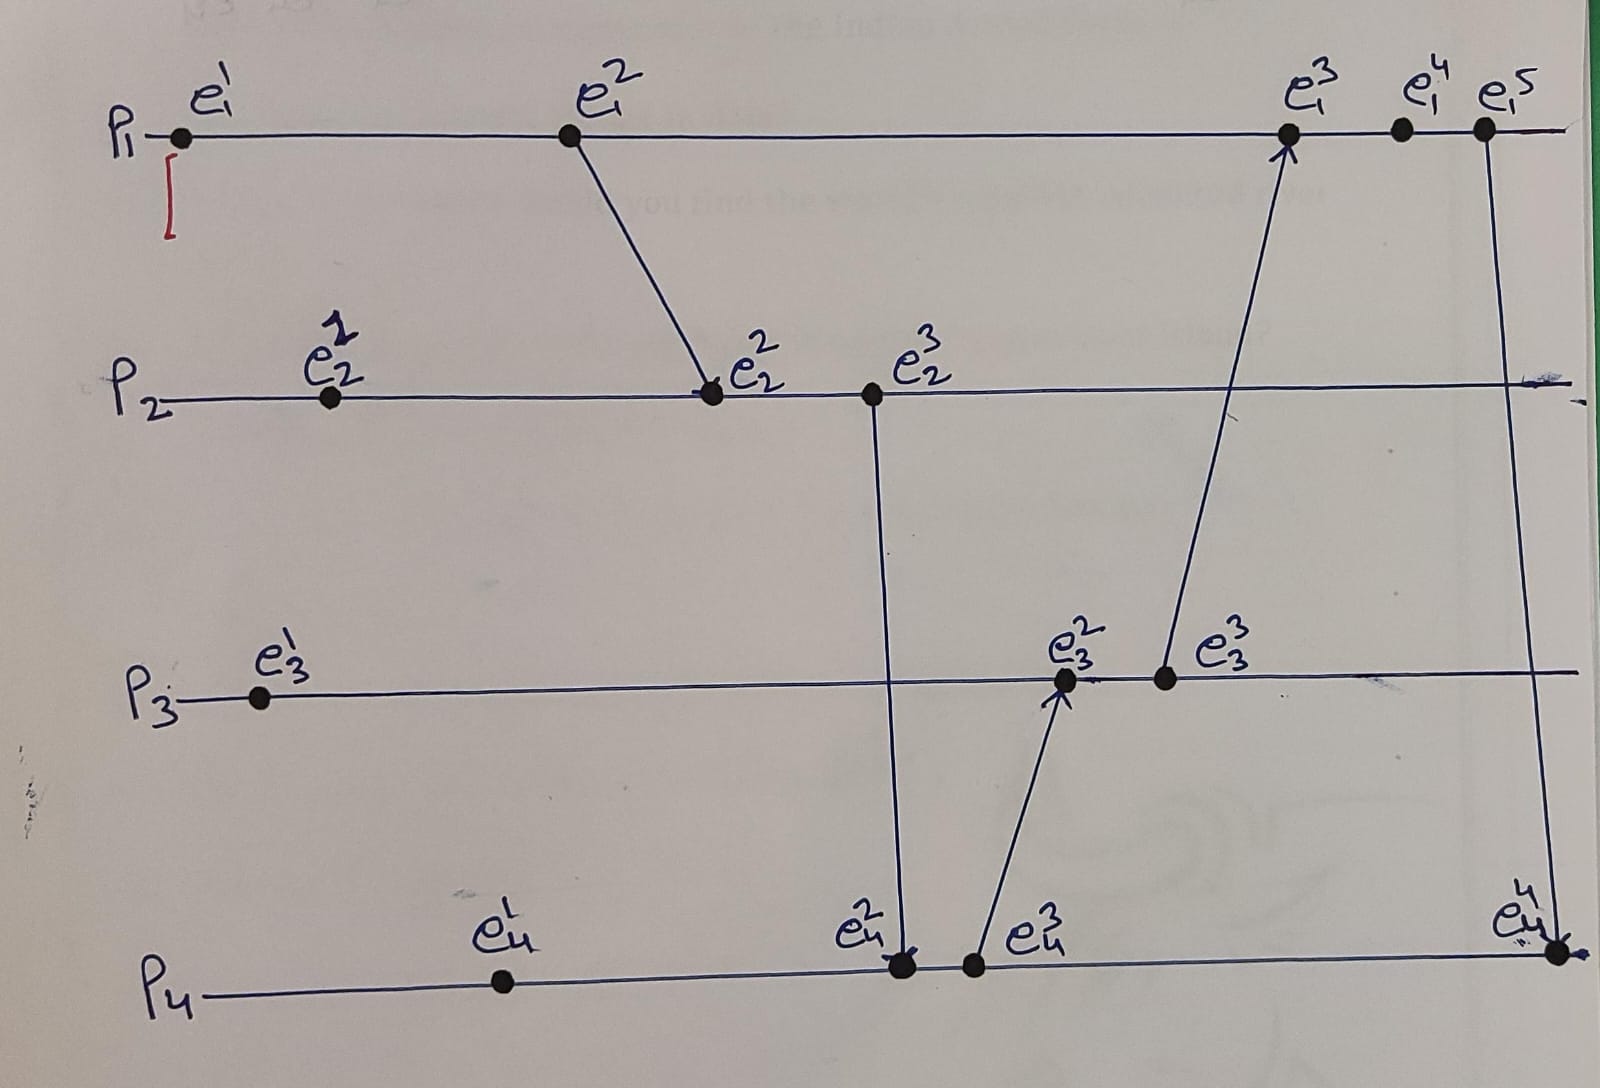 P₁ e₁¹ e₁² e₁³ e₁⁴ e₁⁵
P₂ e₂¹ e₂² e₂³
P₃ e₃¹ e₃² e₃³
P₄ e₄¹ e₄² e₄³ e₄⁴